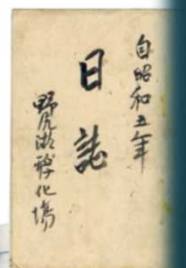 自昭和五年
日誌
野尻湖孵化場